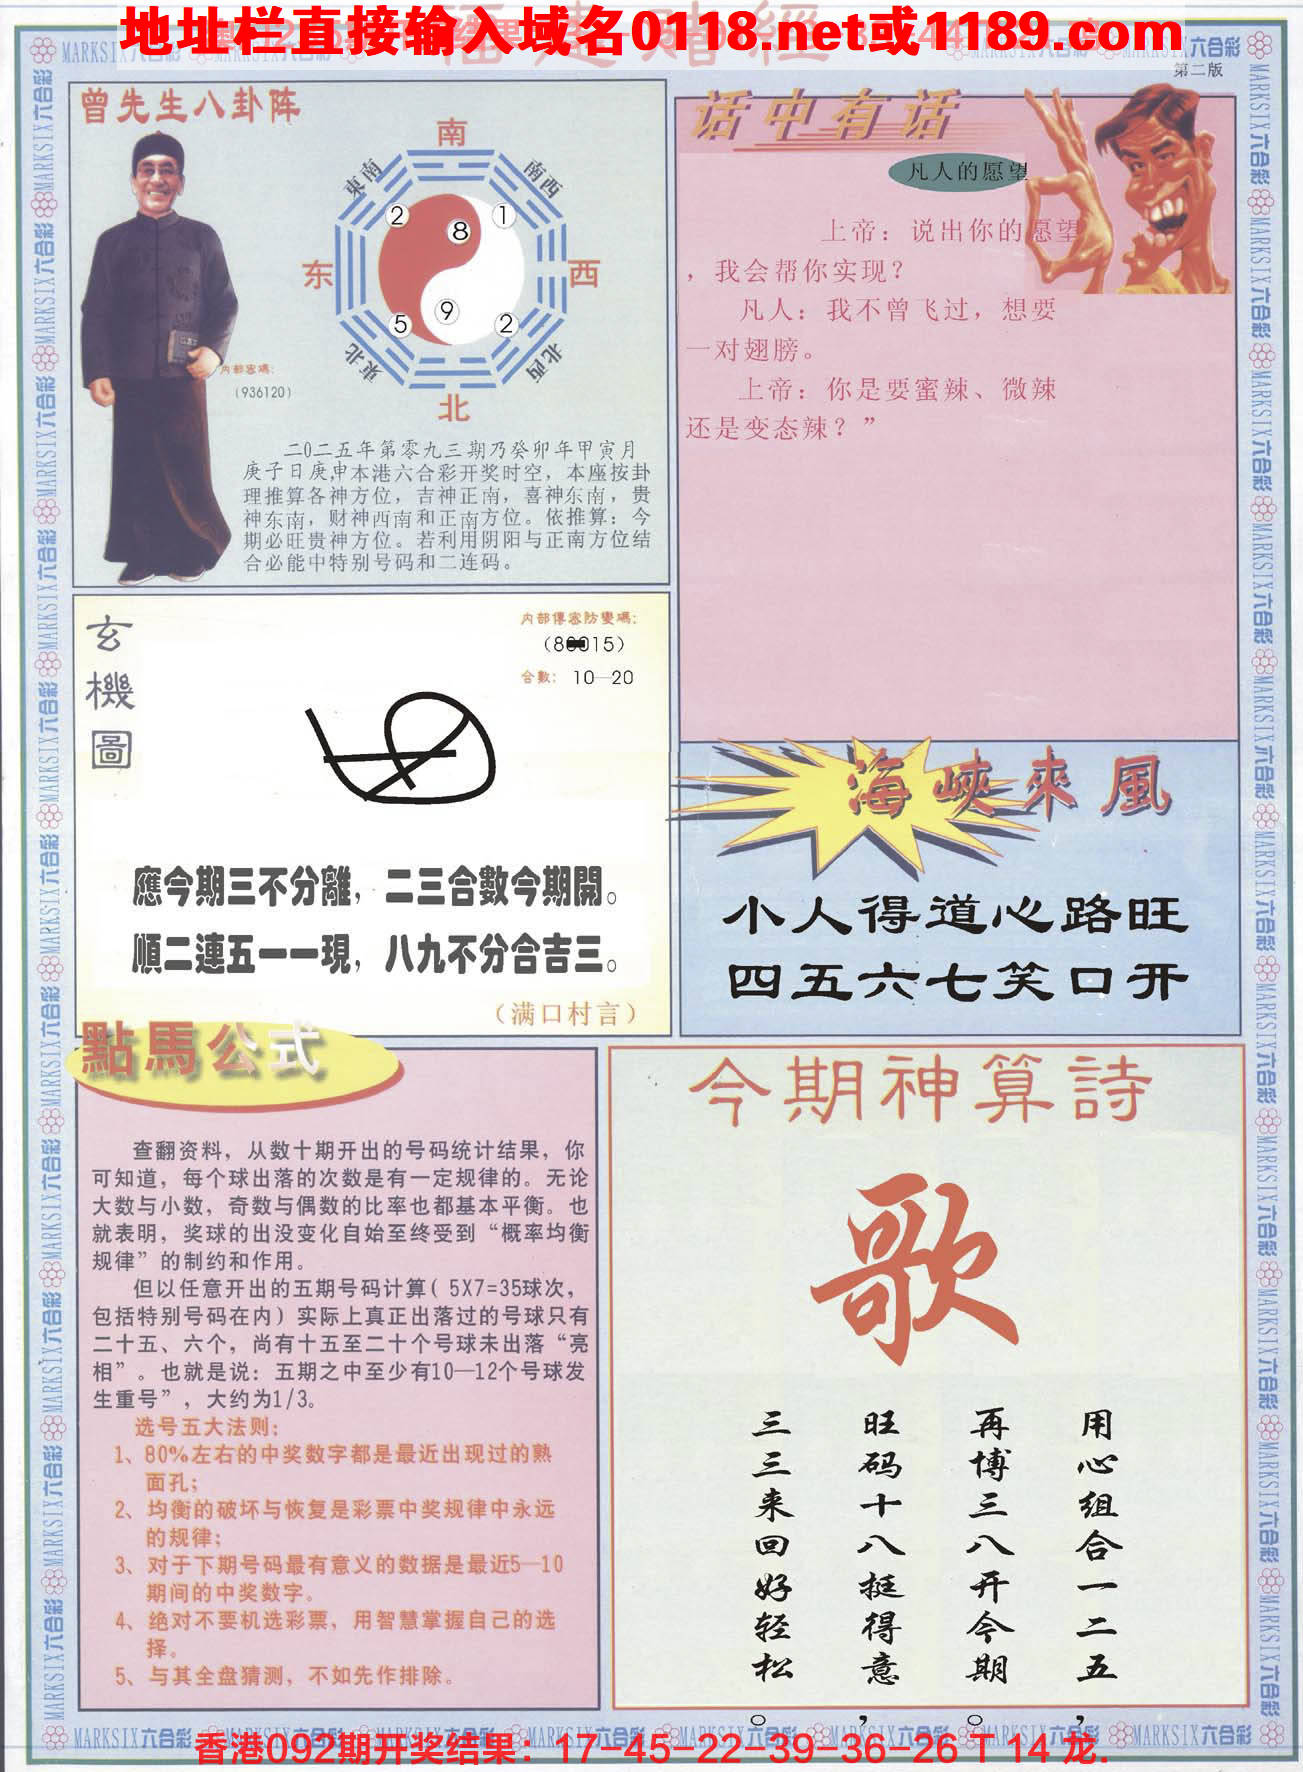 地址栏直接输入域名0118.net或1189.com
第二版
曾先生八卦阵
南
東南
南西
2
8
1
东
西
5
9
2
東北
北西
北
内部密碼:
(936120)
二0二五年第零九三期乃癸卯年甲寅月
庚子日庚申本港六合彩开奖时空，本座按卦
理推算各神方位，吉神正南，喜神东南，贵
神东南，财神西南和正南方位。依推算：今
期必旺贵神方位。若利用阴阳与正南方位结
合必能中特别号码和二连码。
话中有话
凡人的愿望
上帝：说出你的愿望
，我会帮你实现？
凡人：我不曾飞过，想要
一对翅膀。
上帝：你是要蜜辣、微辣
还是变态辣？”
玄機圖
内部傳密防變碼:
合數: 10—20
應今期三不分離，二三合數今期開。
順二連五一一現，八九不分合吉三。
（满口村言）
海峽來風
小人得道心路旺
四五六七笑口开
點馬公式
查翻资料，从数十期开出的号码统计结果，你
可知道，每个球出落的次数是有一定规律的。无论
大数与小数，奇数与偶数的比率也都基本平衡。也
就表明，奖球的出没变化自始至终受到“概率均衡
规律”的制约和作用。
但以任意开出的五期号码计算( 5X7=35球次，
包括特别号码在内）实际上真正出落过的号球只有
二十五、六个，尚有十五至二十个号球未出落“亮
相”。也就是说：五期之中至少有10—12个号球发
生重号”，大约为1/3。
选号五大法则：
1、80%左右的中奖数字都是最近出现过的熟
面孔；
2、均衡的破坏与恢复是彩票中奖规律中永远
的规律；
3、对于下期号码最有意义的数据是最近5—10
期间的中奖数字。
4、绝对不要机选彩票，用智慧掌握自己的选
择。
5、与其全盘猜测，不如先作排除。
今期神算詩
歌
用心组合一二五，
再博三八开今期。
旺码十八挺得意，
三三来回好轻松。
MARKSIX六合彩
香港092期开奖结果：17-45-22-39-36-26 T 14 龙.